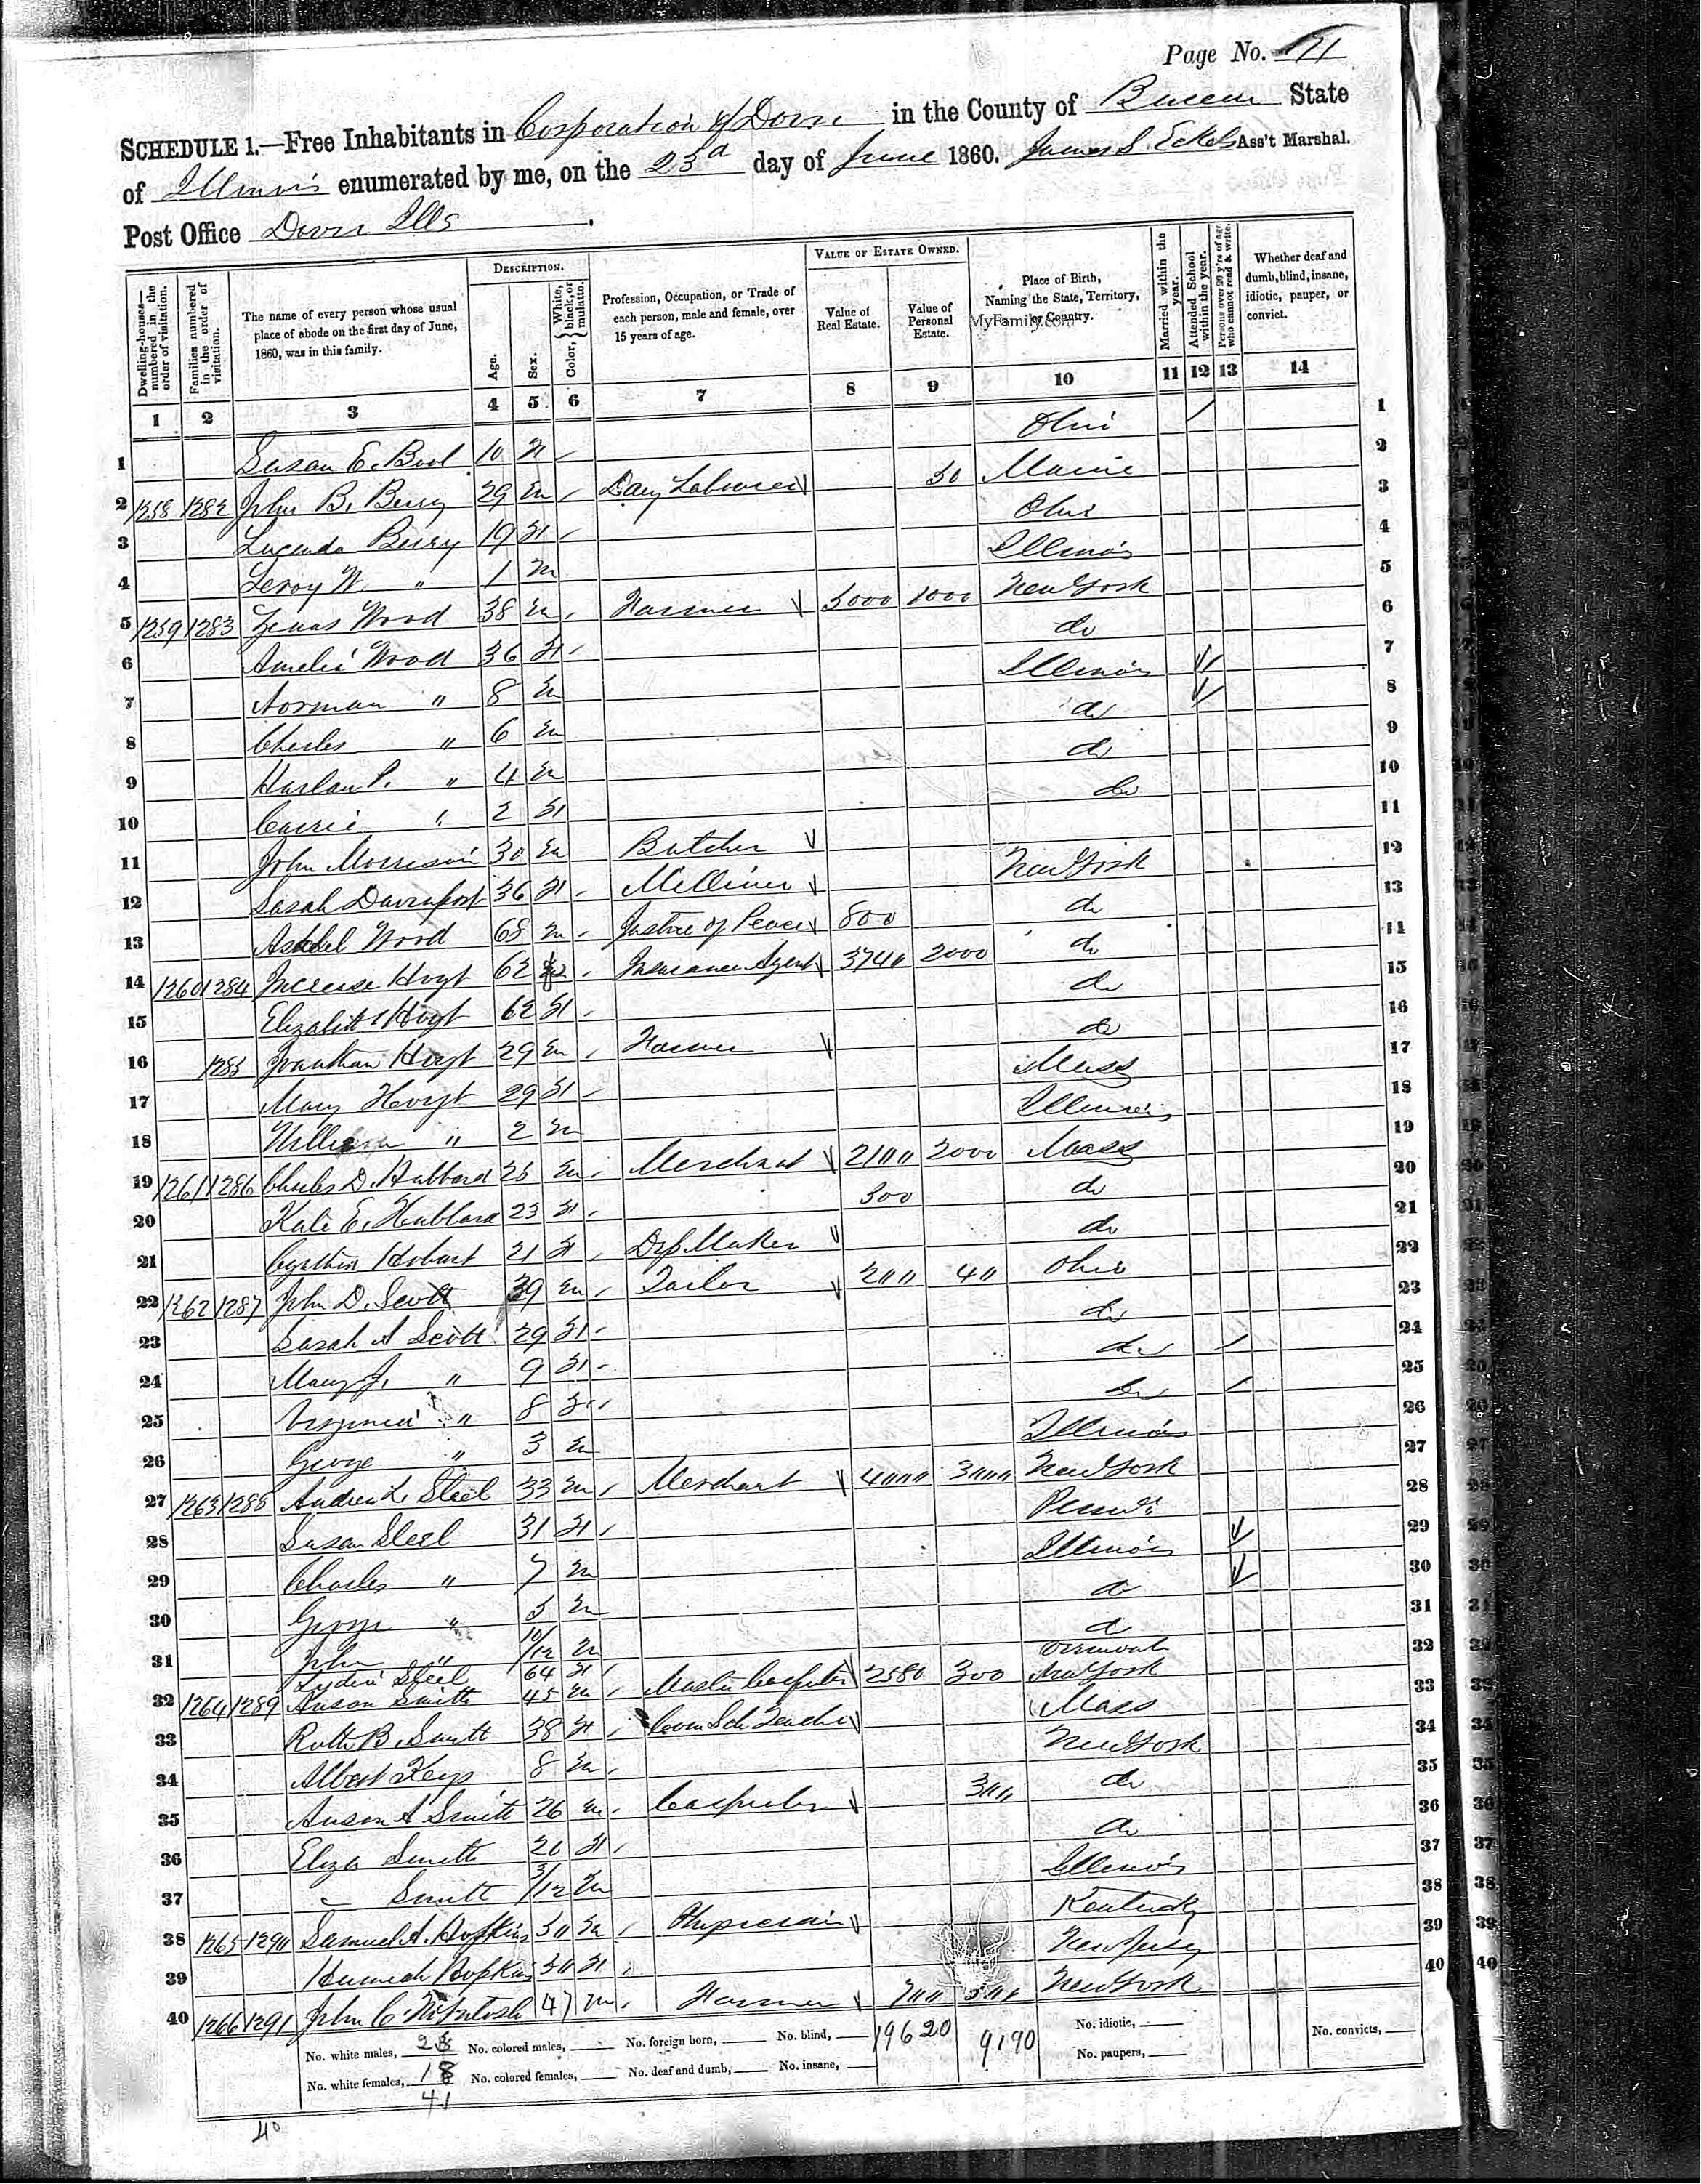 Page No. 171
SCHEDULE 1.—Free Inhabitants in Corporation of Dover in the County of Bureau State
of Illinois enumerated by me, on the 23d day of June 1860. James S. Eckels Ass't Marshal.
Post Office Dover Ills.
Dwelling-houses—numbered in the order of visitation.
Families numbered in the order of visitation.
The name of every person whose usual place of abode on the first day of June, 1860, was in this family.
DESCRIPTION.
Age.
Sex.
Color, { White, black, or mulatto.
Profession, Occupation, or Trade of each person, male and female, over 15 years of age.
VALUE OF ESTATE OWNED.
Value of Real Estate.
Value of Personal Estate.
Place of Birth, Naming the State, Territory, or Country.
MyFamily.com
Married within the year.
Attended School within the year.
Persons over 20 y'rs of age who cannot read & write.
Whether deaf and dumb, blind, insane, idiotic, pauper, or convict.
1 2 3 4 5 6 7 8 9 10 11 12 13 14
1 Susan E. 10 Ohio / 1
2 1258 1282 John B. Berry 29 m / Day Labourer 50 Maine 2
3 Lucinda Berry 19 f / Ohio 3
4 Leroy W. " 1 m Illinois 4
5 1259 1283 Zenas Wood 38 m / Farmer 3000 1000 New York 5
6 Amelia Wood 36 f / do 6
7 Norman " 8 m Illinois / 7
8 Charles " 6 m do / 8
9 Harlan P. " 4 m do 9
10 Carrie " 2 f do 10
11 John Morrison 30 m Butcher 11
12 Sarah Davenport 36 f / Milliner New York 12
13 Wood 68 m / Justice of Peace 800 do 13
14 1260 1284 Increase Hoyt 62 m / Insurance Agent 3700 2000 do 14
15 Elizabeth Hoyt 62 f / do 15
16 1285 Jonathan Hoyt 29 m / Farmer do 16
17 Mary Hoyt 29 f / Mass 17
18 William " 2 m Illinois 18
19 1261 1286 Charles D. Hubbard 25 m / Merchant 2100 2000 Mass 19
20 Kate E. Hubbard 23 f / 300 do 20
21 Cynthia Hobart 21 f / Maker do 21
22 1262 1287 John D. Scott 39 m / Tailor 200 40 Ohio 22
23 Sarah A Scott 29 f / do 23
24 Mary J. " 9 f / do / 24
25 Virginia " 8 f / do / 25
26 George " 3 m Illinois 26
27 1263 1288 Andrew L. Steel 33 m / Merchant 4000 3000 New York 27
28 Susan Steel 31 f / Penn 28
29 Charles " 7 m Illinois / 29
30 George " 5 m do / 30
31 John " 10/12 m do 31
Lydia Steel 64 f / Vermont
32 1264 1289 Anson Smith 45 m / Master Carpenter 2580 300 New York 32
33 Ruth B. Smith 38 f / Com Sch Teacher Mass 33
34 Albert Keys 8 m / New York 34
35 Anson A Smith 26 m / Carpenter 300 do 35
36 Eliza Smith 20 f / do 36
37 — Smith 3/12 m Illinois 37
38 1265 1290 Samuel A. Hopkins 30 m / Physician Kentucky 38
39 Hannah Hopkins 30 f / New Jersey 39
40 1266 1291 John C. McIntosh 47 m / Farmer New York 40
No. white males, 23 No. colored males, No. foreign born, No. blind, 19620 9190 No. idiotic, No. convicts,
No. white females, 18 No. colored females, No. deaf and dumb, No. insane, No. paupers,
41
40